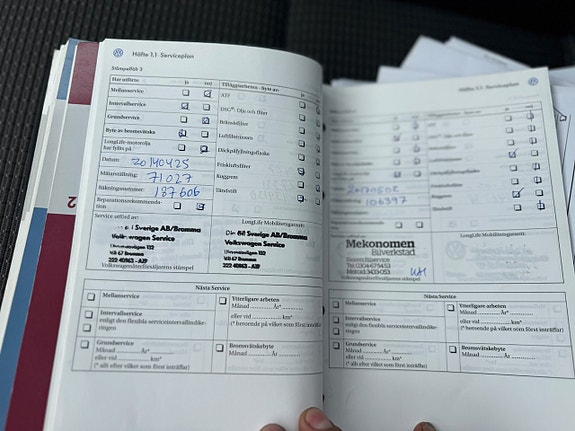 Häfte 7.1 Serviceplan
Stämpelfält 3
Har utförts: ja nej
Mellanservice
Intervallservice
Grundservice
Byte av bromsvätska
LongLife-motorolja
har fyllts på
Datum: 20140425
Mätarställning: 71027
Räkningsnummer: 187606
Reparationsrekommenda-
tion
Tilläggsarbeten - Byte av: ja nej
ATF
DSG®: Olja och filter
Bränslefilter
Luftfilterinsats
Däckpåfyllningsflaska
Friskluftsfilter
Kuggrem
Tändstift
Service utförd av:
Sverige AB/Bromma
Volkswagen Service
Ulvsundavägen 132
168 67 Bromma
222 40963 - AZP
Volkswagenåterförsäljarens stämpel
LongLife Mobilitetsgaranti:
Din Bil Sverige AB/Bromma
Volkswagen Service
Ulvsundavägen 132
168 67 Bromma
222 40963 - AZP
Nästa Service
Mellanservice
Intervallservice
enligt den flexibla serviceintervallindike-
ringen
Grundservice
Månad År*
eller vid km*
(* allt efter vilket som först inträffar)
Ytterligare arbeten
Månad År*
eller vid km*
(* beroende på vilket som först inträffar)
Bromsvätskebyte
Månad År*
Häfte 7.1 Serviceplan
Kuggrem
Tändstift
106397
Mekonomen
Bilverkstad
LongLife Mobilitetsgaranti:
Volkswagenåterförsäljarens stämpel
Nästa Service
Mellanservice
Intervallservice
enligt den flexibla serviceintervallindike-
ringen
Grundservice
Månad År*
eller vid km*
(* allt efter vilket som först inträffar)
Ytterligare arbeten
Månad År*
eller vid km*
(* beroende på vilket som först inträffar)
Bromsvätskebyte
Månad År*